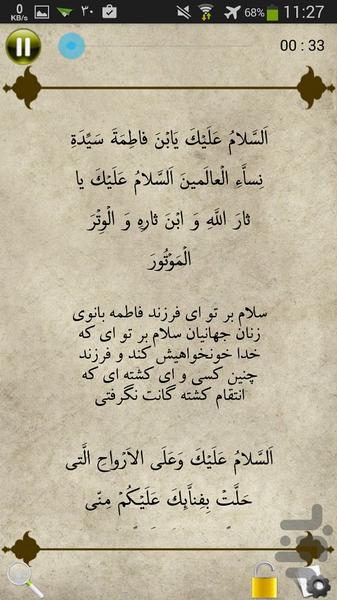 0 KB/s ۳۰ 68% 11:27
00 : 33
اَلسَّلامُ عَلَیْكَ یَابْنَ فاطِمَةَ سَیِّدَةِ
نِساَّءِ الْعالَمینَ اَلسَّلامُ عَلَیْكَ یا
ثارَ اللَّهِ وَ ابْنَ ثارِهِ وَ الْوِتْرَ
الْمَوْتُورَ
سلام بر تو ای فرزند فاطمه بانوی
زنان جهانیان سلام بر تو ای که
خدا خونخواهیش کند و فرزند
چنین کسی و ای کشته ای که
انتقام کشته گانت نگرفتی
اَلسَّلامُ عَلَیْكَ وَعَلَی الاَْرواحِ الَّتی
حَلَّتْ بِفِناَّئِكَ عَلَیْكُمْ مِنّی
بازار